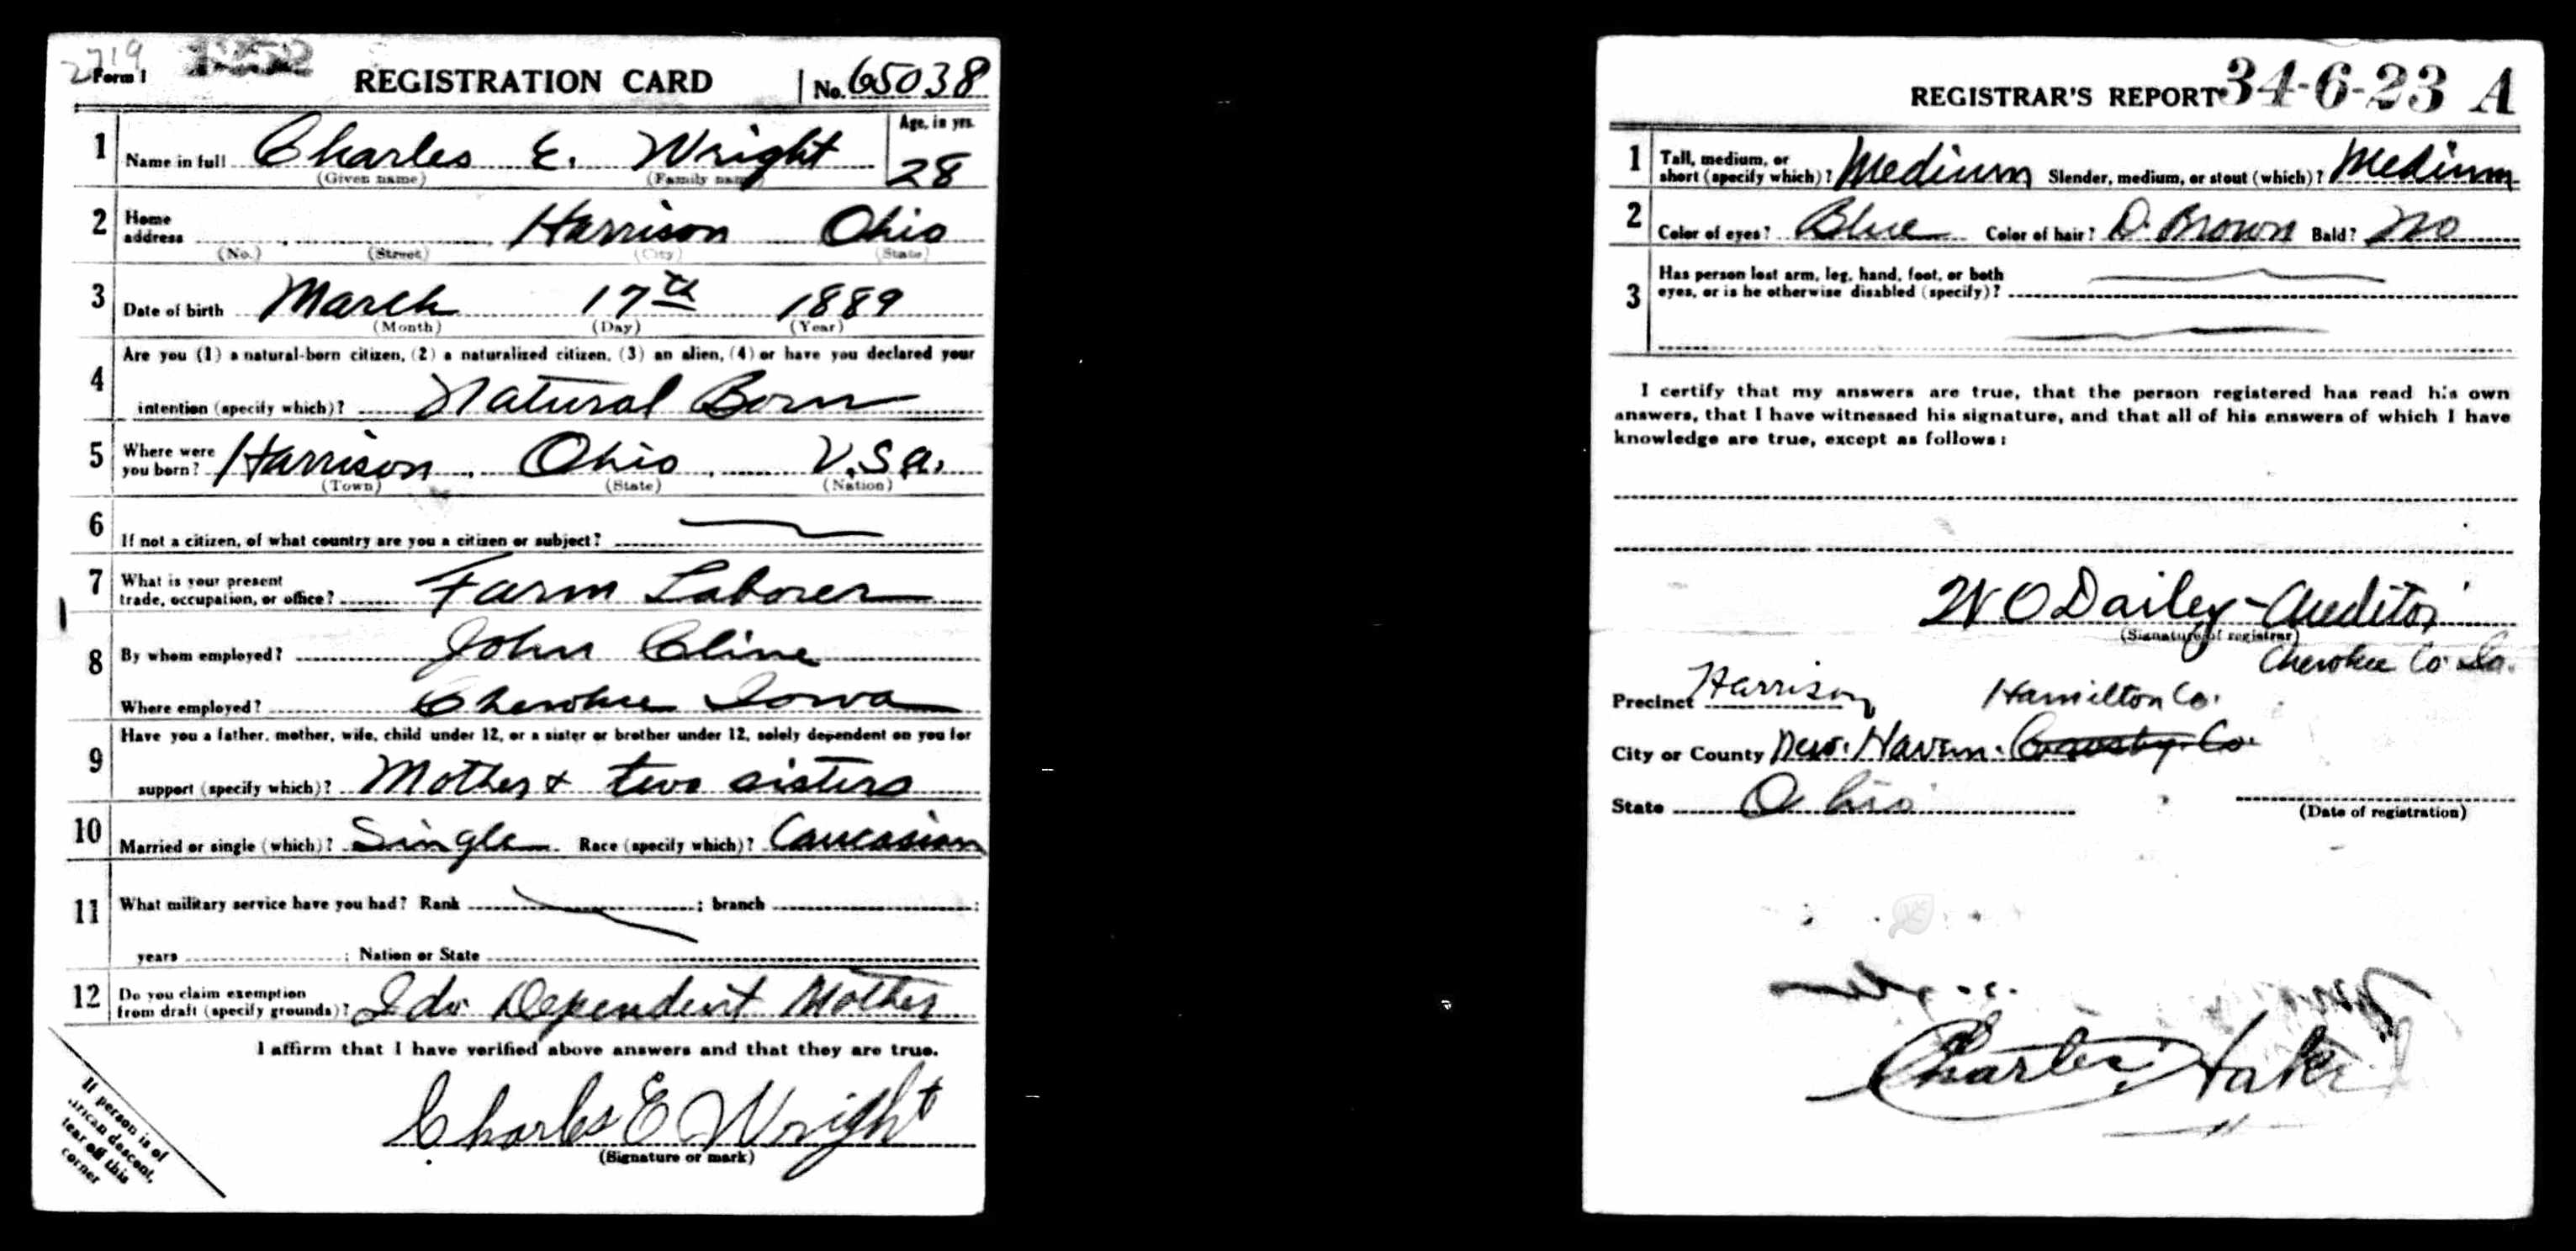 2719
Form 1 REGISTRATION CARD No. 65038
1 Name in full Charles E. Wright Age, in yrs. 28
(Given name) (Family name)
2 Home address Harrison Ohio
(No.) (Street) (City) (State)
3 Date of birth March 17th 1889
(Month) (Day) (Year)
4 Are you (1) a natural-born citizen, (2) a naturalized citizen, (3) an alien, (4) or have you declared your
intention (specify which)? Natural Born
5 Where were you born? Harrison, Ohio, U.S.A.
(Town) (State) (Nation)
6 If not a citizen, of what country are you a citizen or subject?
7 What is your present trade, occupation, or office? Farm Laborer
8 By whom employed? John Cline
Where employed? Cherokee Iowa
9 Have you a father, mother, wife, child under 12, or a sister or brother under 12, solely dependent on you for
support (specify which)? Mother & two sisters
10 Married or single (which)? Single Race (specify which)? Caucasian
11 What military service have you had? Rank ; branch ;
years ; Nation or State
12 Do you claim exemption from draft (specify grounds)? I do Dependent Mother
I affirm that I have verified above answers and that they are true.
Charles E Wright
(Signature or mark)
If person is of
African descent,
tear off this
corner
REGISTRAR'S REPORT 34-6-23 A
1 Tall, medium, or short (specify which)? Medium Slender, medium, or stout (which)? Medium
2 Color of eyes? Blue Color of hair? D. Brown Bald? No
3 Has person lost arm, leg, hand, foot, or both
eyes, or is he otherwise disabled (specify)?
I certify that my answers are true, that the person registered has read his own
answers, that I have witnessed his signature, and that all of his answers of which I have
knowledge are true, except as follows:
W O Dailey - Auditor
(Signature of registrar)
Cherokee Co. Ia.
Precinct Harrison Hamilton Co.
City or County New Haven
State Ohio
(Date of registration)
Charles